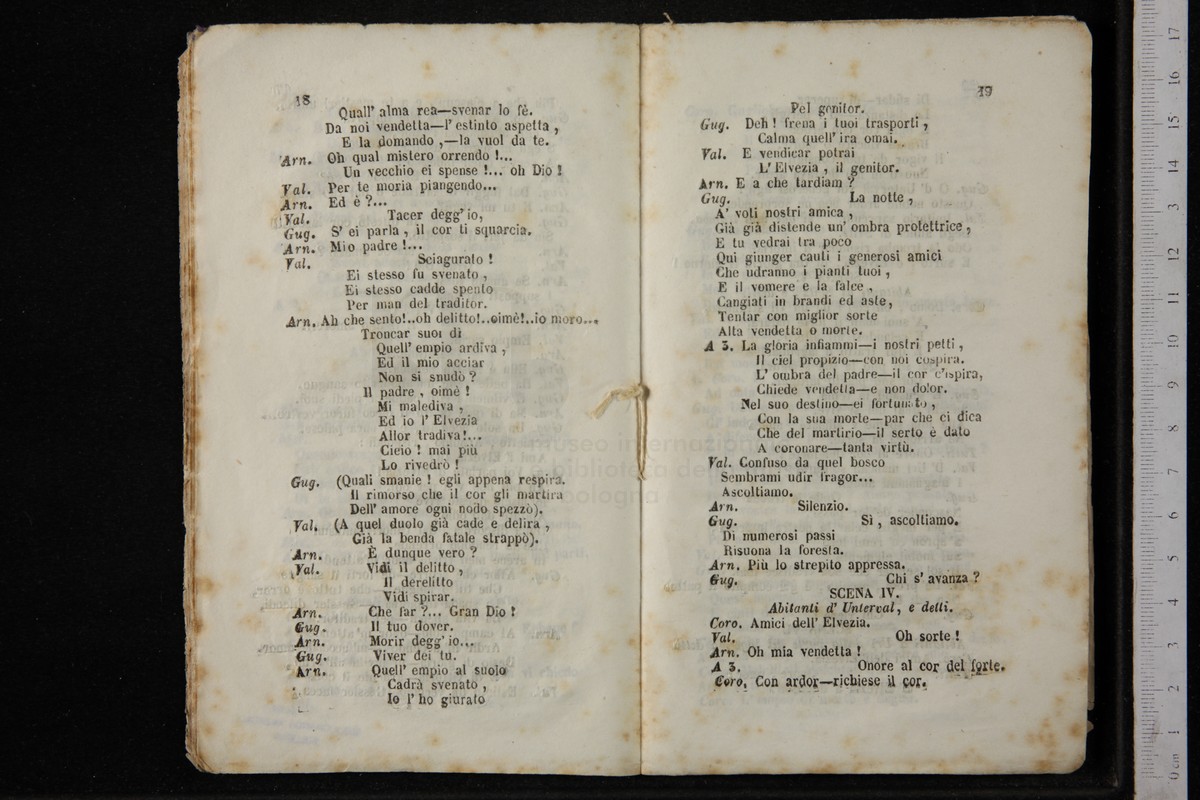 18
Quall' alma rea—svenar lo fè.
Da noi vendetta—l' estinto aspetta ,
E la domando ,—la vuol da te.
Arn. Oh qual mistero orrendo !...
Un vecchio ei spense !... oh Dio !
Val. Per te moria piangendo...
Arn. Ed è ?...
Val. Tacer degg' io,
Gug. S' ei parla , il cor ti squarcia.
Arn. Mio padre !...
Val. Sciagurato !
Ei stesso fu svenato ,
Ei stesso cadde spento
Per man del traditor.
Arn. Ah che sento!..oh delitto!..oimè!..io moro...
Troncar suoi dì
Quell' empio ardiva ,
Ed il mio acciar
Non si snudò ?
Il padre , oimè !
Mi malediva ,
Ed io l' Elvezia
Allor tradiva!...
Cielo ! mai più
Lo rivedrò !
Gug. (Quali smanie ! egli appena respira.
Il rimorso che il cor gli martira
Dell' amore ogni nodo spezzò).
Val. (A quel duolo già cade e delira ,
Già la benda fatale strappò).
Arn. È dunque vero ?
Val. Vidi il delitto ,
Il derelitto
Vidi spirar.
Arn. Che far ?... Gran Dio !
Gug. Il tuo dover.
Arn. Morir degg' io...
Gug. Viver dei tu.
Arn. Quell' empio al suolo
Cadrà svenato ,
Io l' ho giurato
19
Pel genitor.
Gug. Deh ! frena i tuoi trasporti ,
Calma quell' ira omai.
Val. E vendicar potrai
L' Elvezia , il genitor.
Arn. E a che tardiam ?
Gug. La notte ,
A' voti nostri amica ,
Già già distende un' ombra protettrice ,
E tu vedrai tra poco
Qui giunger cauti i generosi amici
Che udranno i pianti tuoi ,
E il vomere e la falce ,
Cangiati in brandi ed aste,
Tentar con miglior sorte
Alta vendetta o morte.
A 3. La gloria infiammi—i nostri petti ,
Il ciel propizio—con noi cospira.
L' ombra del padre—il cor c'ispira,
Chiede vendetta—e non dolor.
Nel suo destino—ei fortunato ,
Con la sua morte—par che ci dica
Che del martirio—il serto è dato
A coronare—tanta virtù.
Val. Confuso da quel bosco
Sembrami udir fragor...
Ascoltiamo.
Arn. Silenzio.
Gug. Sì , ascoltiamo.
Di numerosi passi
Risuona la foresta.
Arn. Più lo strepito appressa.
Gug. Chi s' avanza ?
SCENA IV.
Abitanti d' Unterval, e detti.
Coro. Amici dell' Elvezia.
Val. Oh sorte !
Arn. Oh mia vendetta !
A 3. Onore al cor del forte.
Coro. Con ardor—richiese il cor.
museo internazionale
biblioteca de
bologna